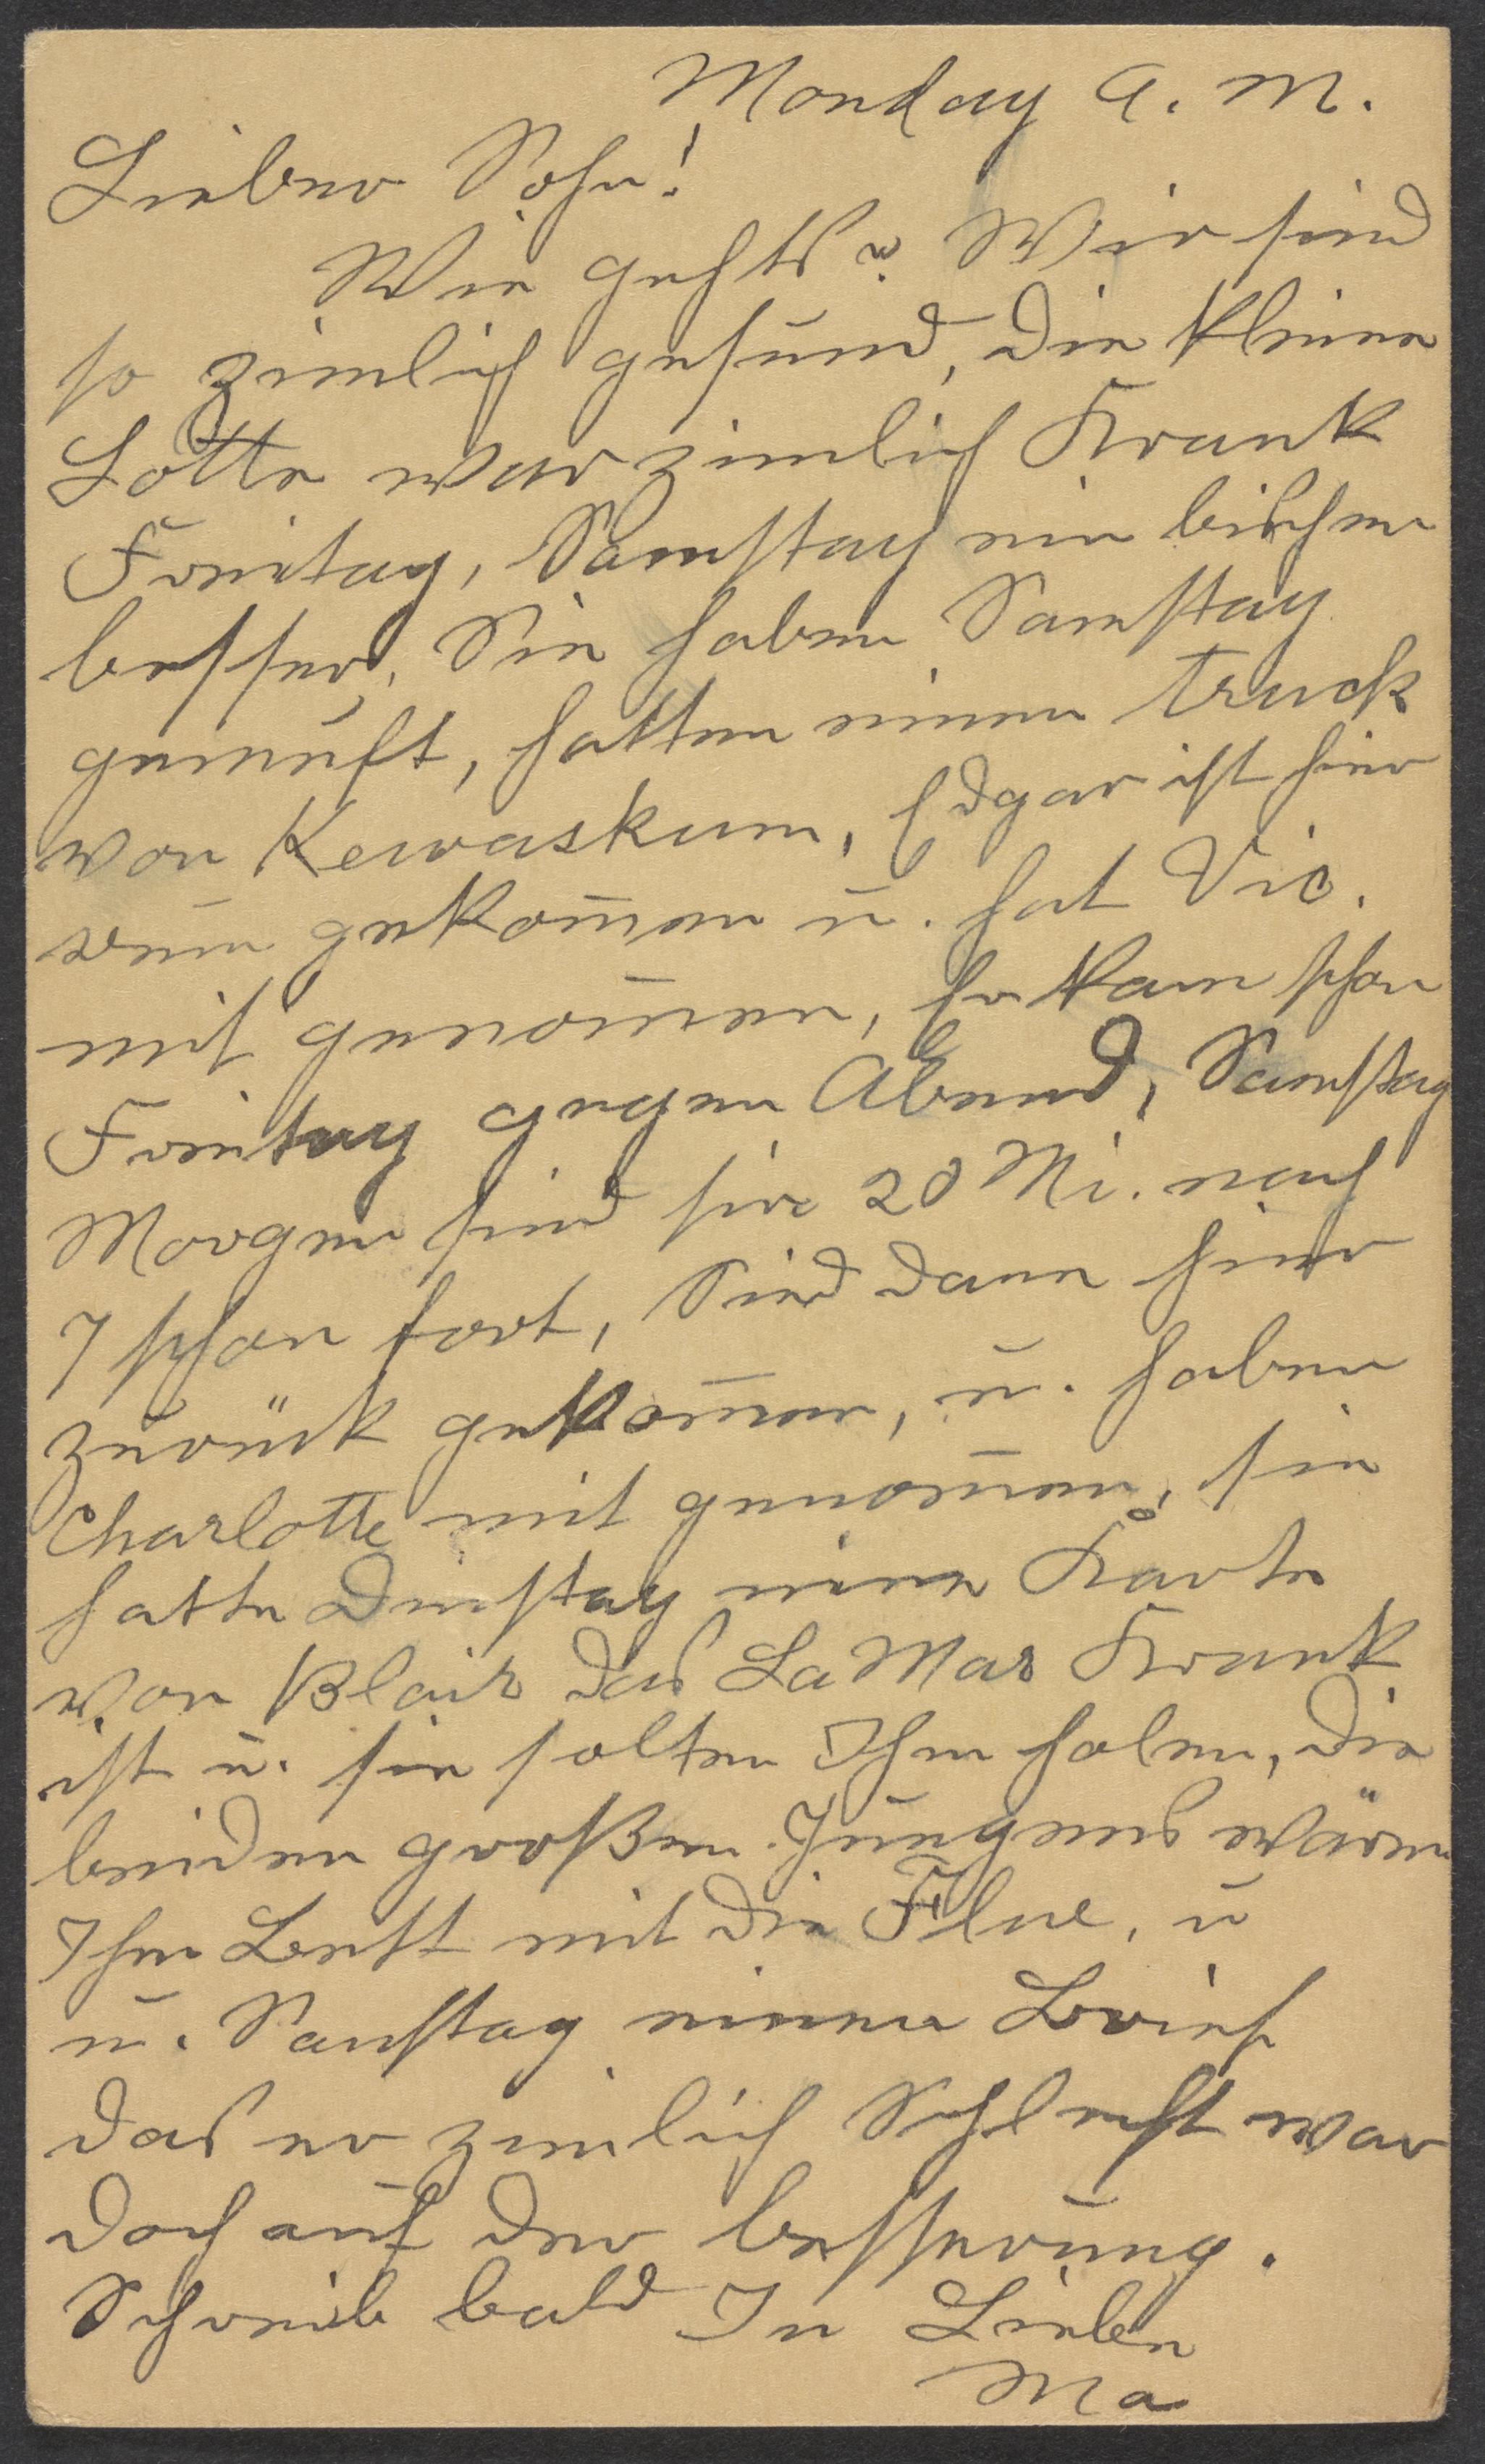 Monday A. M.
Lieber Sohn!
Wie gehts? Wir sind
so zimlich gesund, die kleine
Lotte war zimlich Krank
Freitag, Samstag ein bischen
besser, Sie haben Samstag
gemuft, hatten einen truck
von Kewaskum, Edgar ist hier
rein gekom̄en u. hat Vic.
mit genom̄en, Er kam schon
Freitag gegen Abend, Samstag
Morgen sind sie 20 Mi. nach
7 schon fort, Sind dann hier
zurück gekom̄en, u. haben
Charlotte mit genom̄en, sie
hatte Dinstag eine Karte
von Blair das La Mar Krank
ist u. sie solten Ihm holen, die
beiden großen Jungens wären
Ihm Bett mit die Flue, u
u. Samstag einen Brief
das er zimlich Schlecht war
doch auf der besserung.
Schreib bald In Liebe
Ma